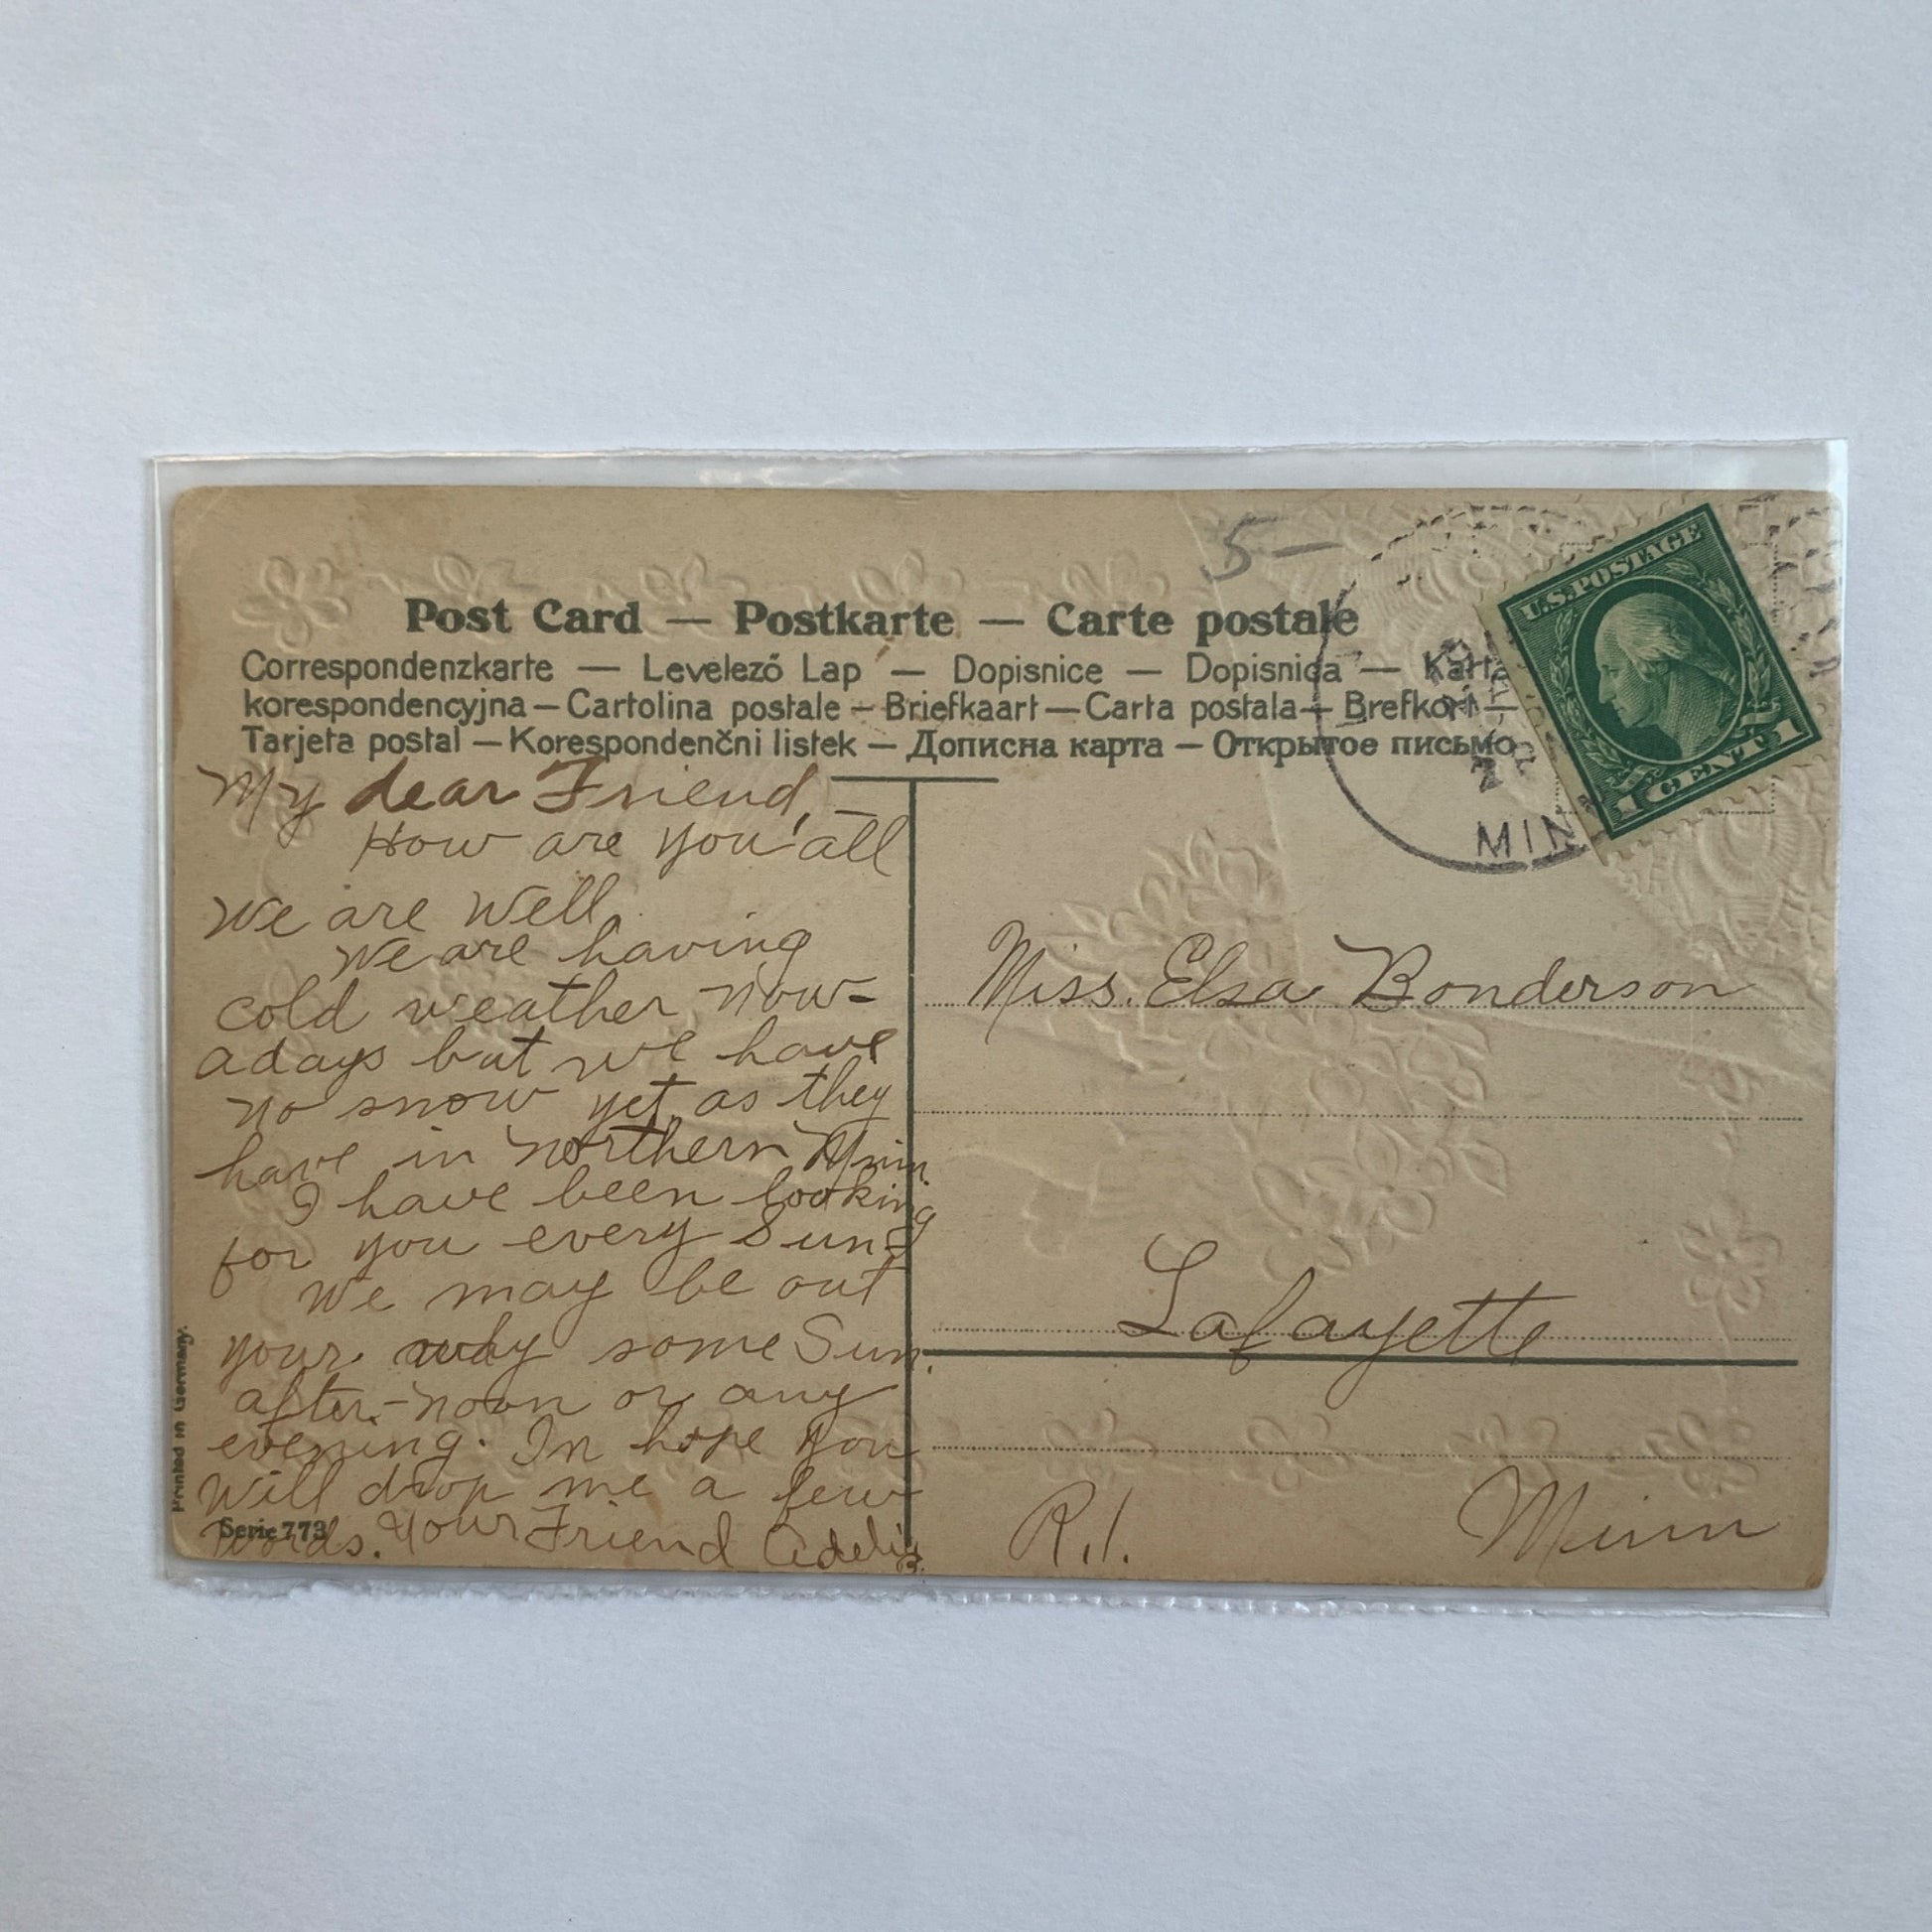 5 —
Post Card — Postkarte — Carte postale
Correspondenzkarte — Levelező Lap — Dopisnice — Dopisnica — Karta
korespondencyjna — Cartolina postale — Briefkaart — Carta postala — Brefkort —
Tarjeta postal — Korespondenčni listek — Дописна карта — Открытое письмо
U.S. POSTAGE
1 CENT 1
MIN
My dear Friend, —
How are you all
We are well.
We are having
cold weather now-
adays but we have
no snow yet, as they
have in northern Minn.
I have been looking
for you every Sun.
We may be out
your way some Sun.
after-noon or any
evening. In hope you
will drop me a few
words. Your Friend Adelia
B.
Miss. Elsa Bonderson
Lafayette
R.1. Minn
Printed in Germany.
Serie 773